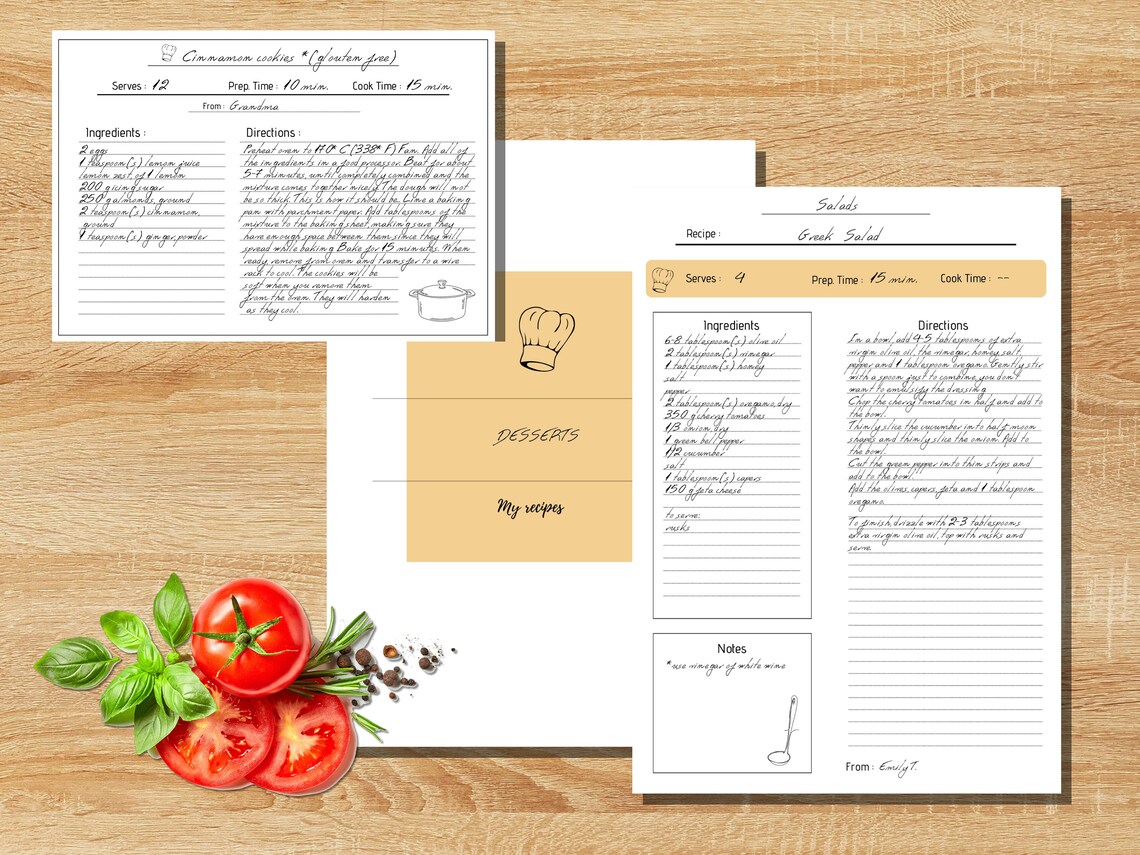 Cinnamom cookies *(glouten free)
Serves : 12 Prep. Time : 10 min. Cook Time : 15 min.
From : Grandma
Ingredients :
2 eggs
1 teaspoon(s) lemon juice
lemon zest of 1 lemon
200 g icing sugar
250 g almonds, ground
2 teaspoon(s) cinnamon,
ground
1 teaspoon(s) ginger, powder
Directions :
Preheat oven to 170* C (338* F) Fan. Add all of
the ingredients in a food processor. Beat for about
5-7 minutes, until completely combined and the
mixture comes together nicely. The dough will not
be so thick. This is how it should be. Line a baking
pan with parchment paper. Add tablespoons of the
mixture to the baking sheet, making sure they
have enough space between them since they will
spread while baking. Bake for 15 minutes. When
ready, remove from oven and transfer to a wire
rack to cool. The cookies will be
soft when you remove them
from the oven. They will harden
as they cool.
DESSERTS
My recipes
Salads
Recipe : Greek Salad
Serves : 4 Prep. Time : 15 min. Cook Time : --
Ingredients
6-8 tablespoon(s) olive oil
2 tablespoon(s) vinegar
1 tablespoon(s) honey
salt
pepper
2 tablespoon(s) oregano, dry
350 g cherry tomatoes
1/3 onion, dry
1 green bell pepper
1/2 cucumber
salt
1 tablespoon(s) capers
150 g feta cheese
to serve:
rusks
Notes
*use vinegar of white wine
Directions
In a bowl, add 4-5 tablespoons of extra
virgin olive oil, the vinegar, honey, salt,
pepper and 1 tablespoon oregano. Gently stir
with a spoon just to combine, you don't
want to emulsify the dressing.
Chop the cherry tomatoes in half and add to
the bowl.
Thinly slice the cucumber into half moon
shapes and thinly slice the onion. Add to
the bowl.
Cut the green pepper into thin strips and
add to the bowl.
Add the olives, capers, feta and 1 tablespoon
oregano.
To finish, drizzle with 2-3 tablespoons
extra virgin olive oil, top with rusks and
serve.
From : Emily T.